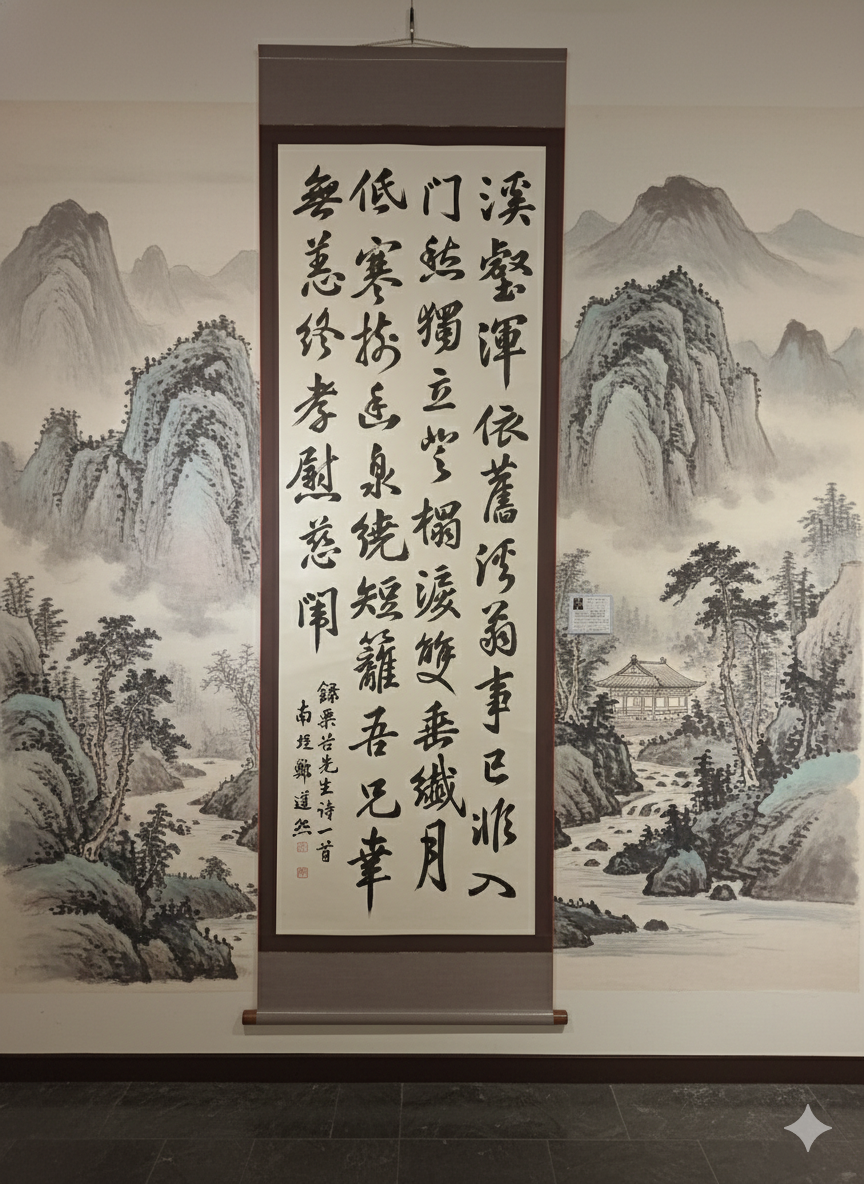 溪壑渾依舊翁事已非入
门愁獨立登榻淚雙垂纖月
低寒樹幽泉繞短籬吾兄幸
無恙終孝慰慈闈
錄栗谷先生诗一首
南鄭道然